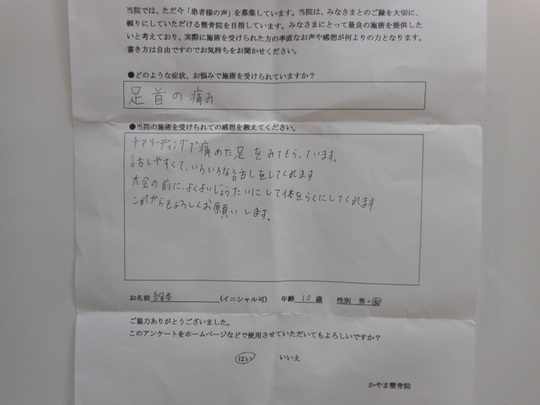 当院では、ただ今「患者様の声」を募集しています。当院は、みなさまとのご縁を大切に、
頼りにしていただける整骨院を目指しています。みなさまにとって最良の施術を提供した
いと考えており、実際に施術を受けられた方の率直なお声や感想が何よりの力となります。
書き方は自由ですのでお気持ちをお聞かせください。
●どのような症状、お悩みで施術を受けられていますか？
足首の痛み
●当院の施術を受けられての感想を教えてください。
チアリーディングで痛めた足をみてもらっています。
話しやすくて、いろいろな話しをしてくれます
大会の前に、よくよいじょうたいにして体をらくにしてくれます
これからもよろしくお願いします。
お名前 (イニシャル可) 年齢 10 歳 性別 男・女
ご協力ありがとうございました。
このアンケートをホームページなどで使用させていただいてもよろしいですか？
はい いいえ
かやま整骨院